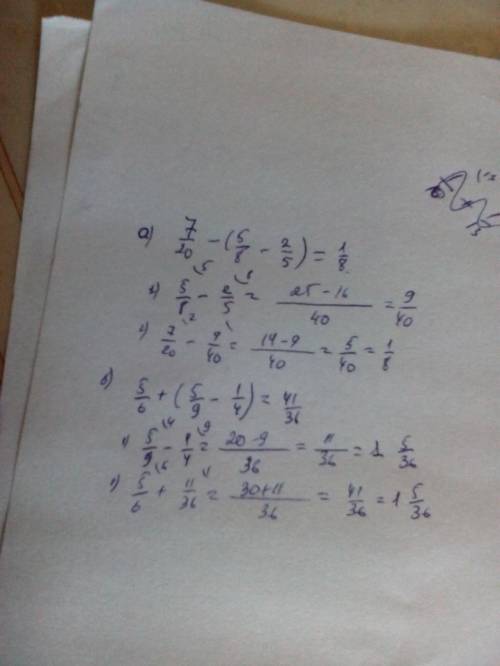 а) 7/20 - (5/8 - 2/5) = 1/8
1) 5/8 - 2/5 = 25-16/40 = 9/40
2) 7/20 - 9/40 = 14-9/40 = 5/40 = 1/8
б)
5/6 + (5/9 - 1/4) = 41/36
1) 5/9 - 1/4 = 20-9/36 = 11/36 = 1 5/36
2) 5/6 + 11/36 = 30+11/36 = 41/36 = 1 5/36